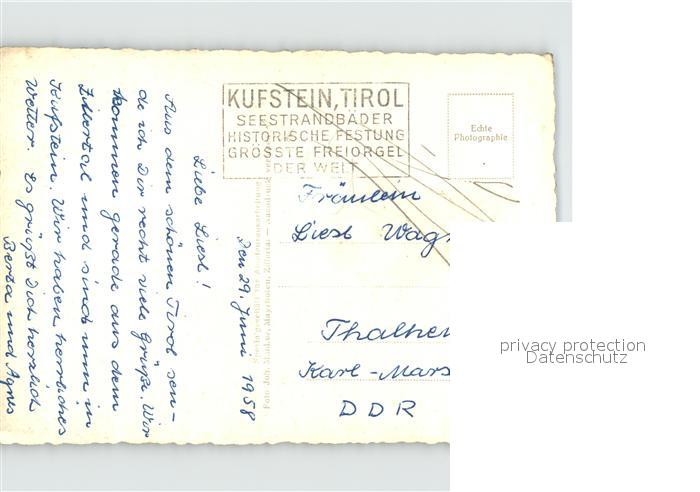 Den 29. Juni 1958
Liebe Liesl!
Aus dem schönen Tirol sen-
de ich Dir recht viele Grüße. Wir
kommen gerade aus dem
Zillertal und sind nun in
Kufstein. Wir haben herrliches
Wetter. Es grüßt Dich herzlich
Berta und Agnes
KUFSTEIN, TIROL
SEESTRANDBÄDER
HISTORISCHE FESTUNG
GRÖSSTE FREIORGEL
DER WELT
Echte
Photographie
Fräulein
Liesl Wag
Thalhei
Karl-Mars
DDR
privacy protection
Datenschutz